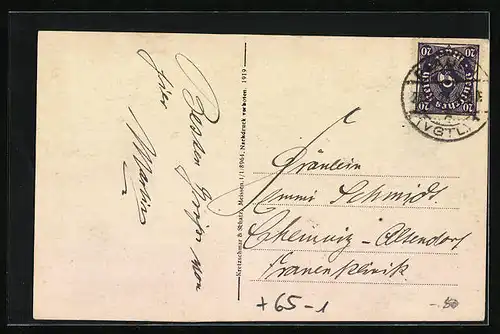 Besten Gruß von
hier
Martin
Kretzschmar & Schatz, Meissen 1/1:8964. Nachdruck verboten. 1919
20 20
Deutsches Reich
20 20
(VGTL.)
Fräulein
Emmi Schmidt
Chemnitz-Altendorf
Frauenklinik
+65-1
-.50